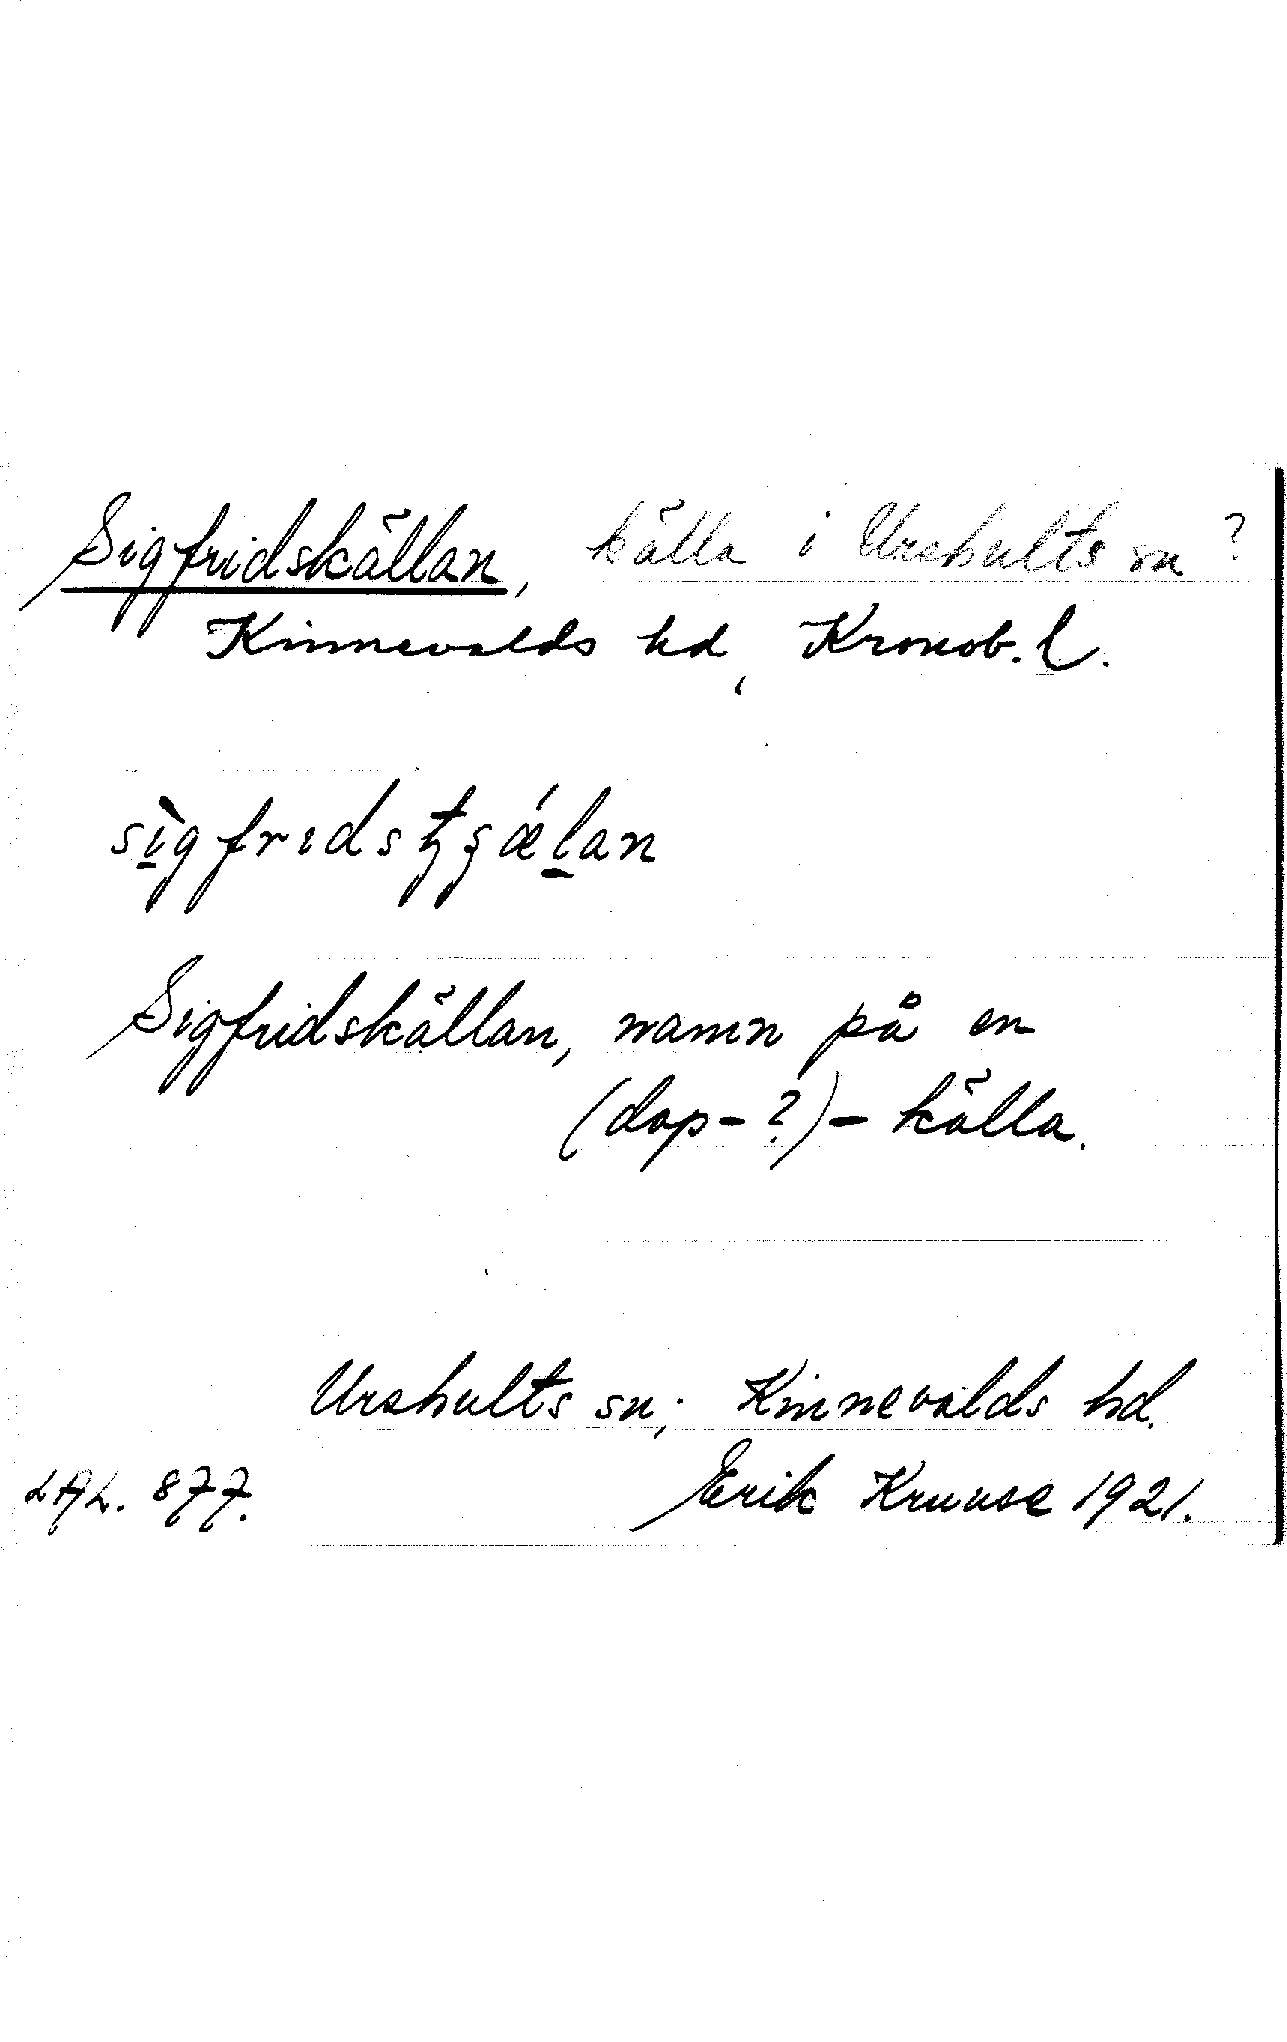 Sigfridskällan, källa i Urshults sn?
Kinnevalds hd, Kronob. l.
sìgfridstʒǽlan
Sigfridskällan, namn på en
(dop-?)-källa.
Urshults sn; Kinnevalds hd.
LAL. 877. Erik Kruuse 1921.